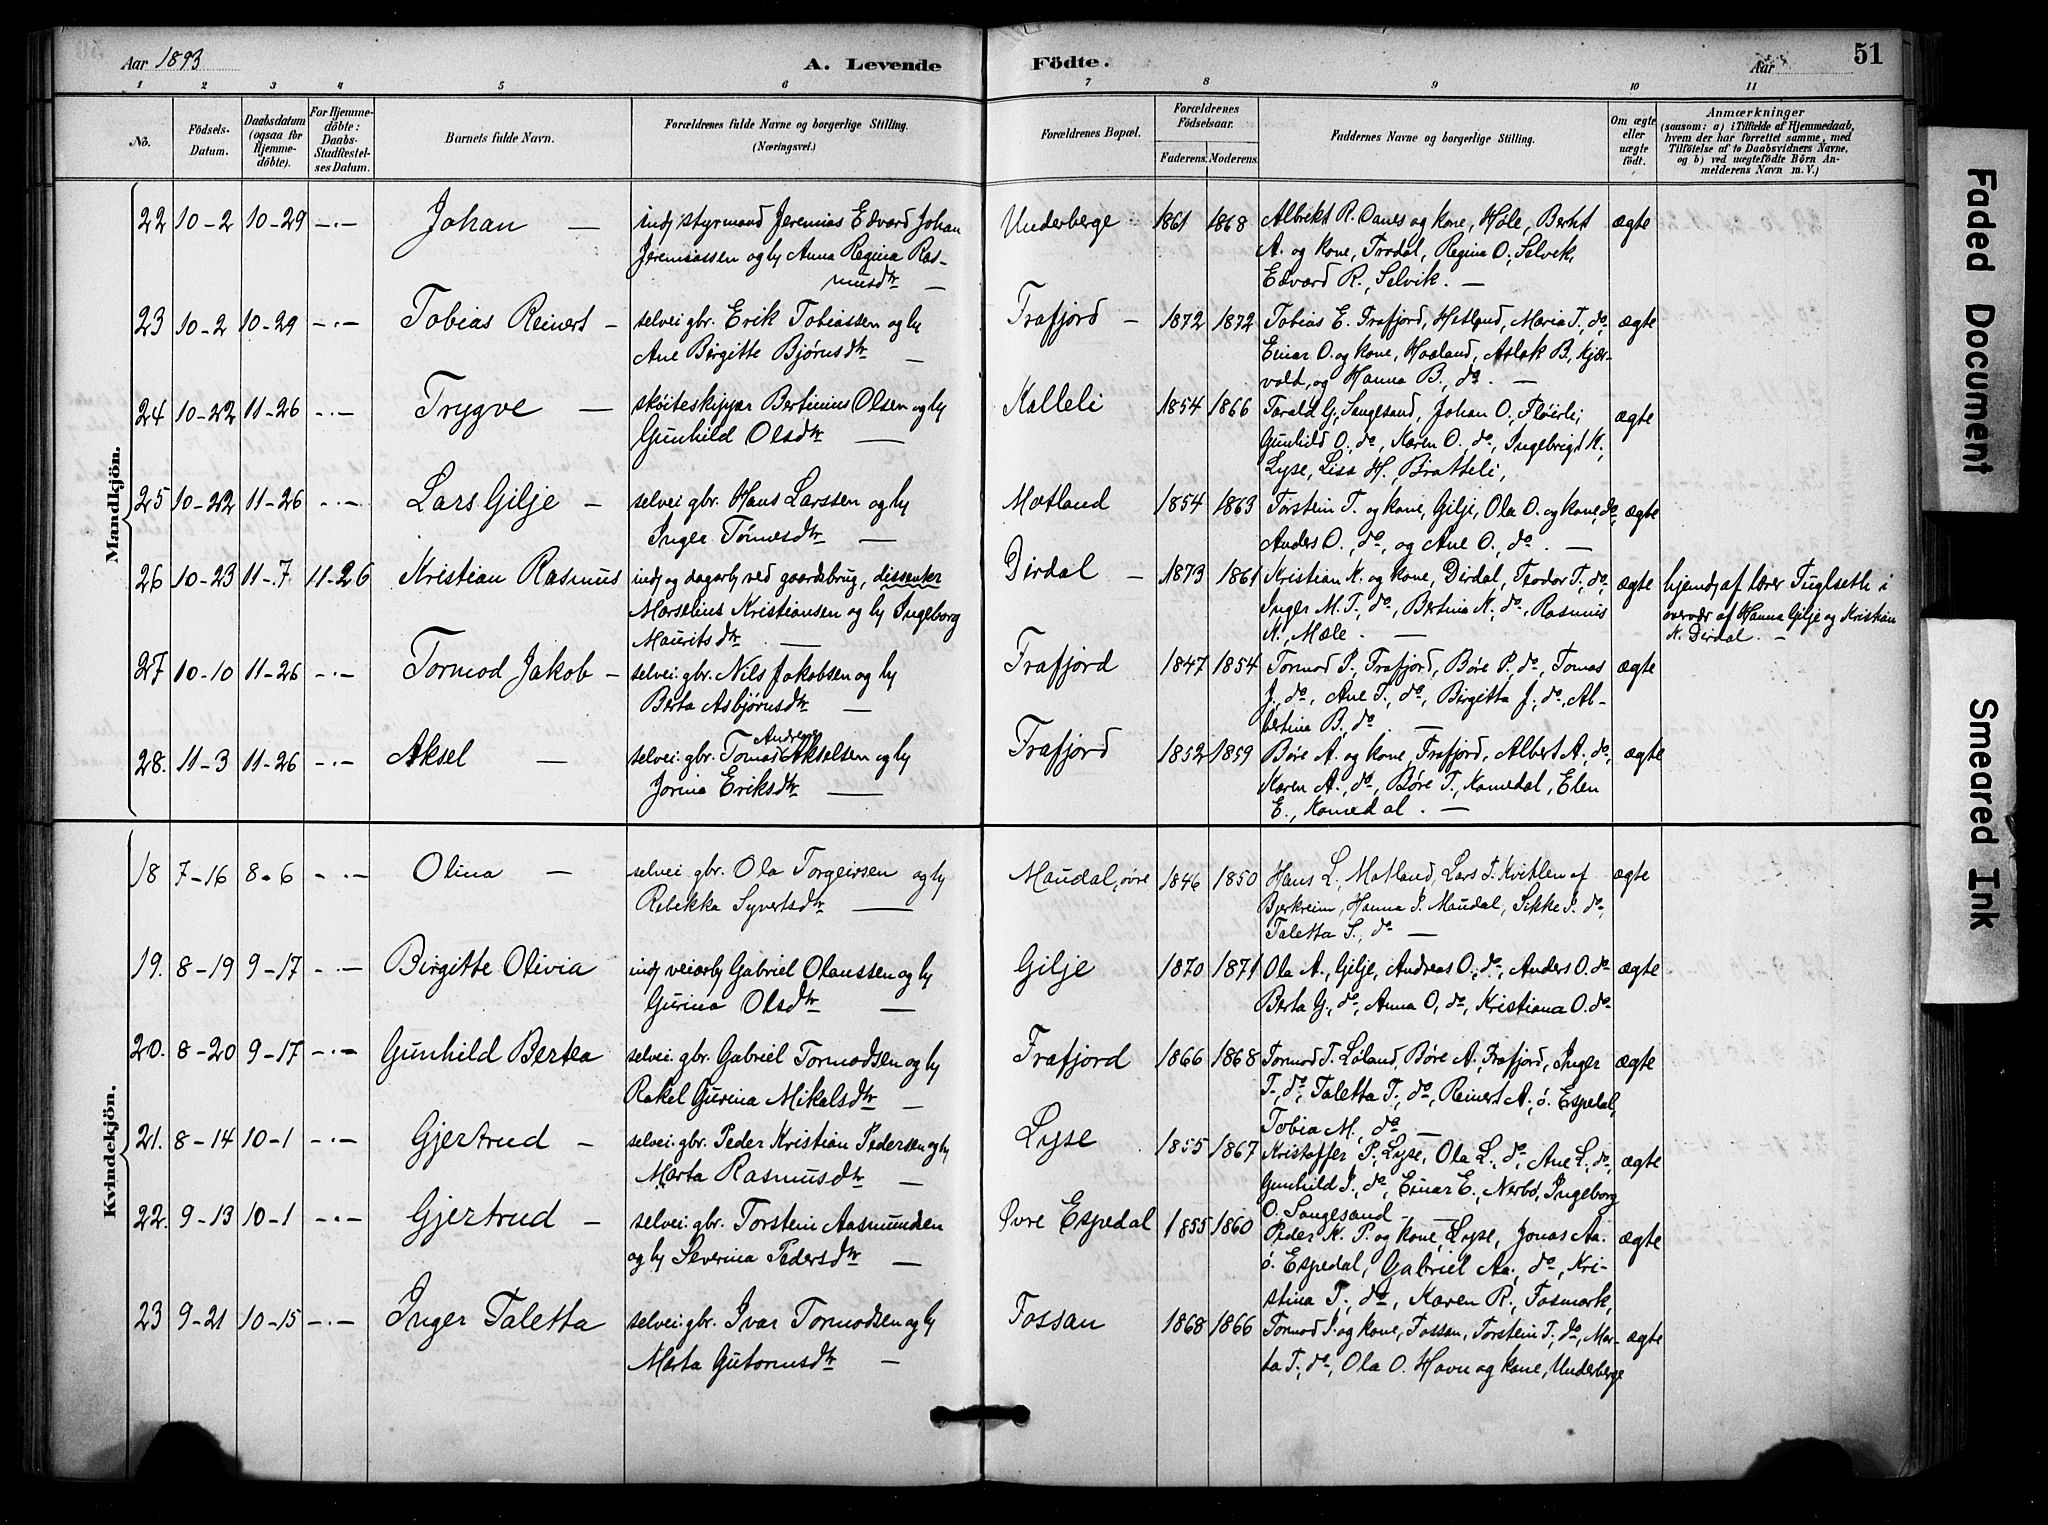 Aar 1893
A. Levende Födte.
Aar
51
1 2 3 4 5 6 7 8 9 10 11
No.
Födsels-Datum.
Daabsdatum (ogsaa for Hjemmedöbte).
For Hjemmedöbte: Daabs-Stadfæstelses Datum.
Barnets fulde Navn.
Forældrenes fulde Navne og borgerlige Stilling. (Næringsvei.)
Forældrenes Bopæl.
Forældrenes Födselsaar.
Faderens. Moderens.
Faddernes Navne og borgerlige Stilling.
Om ægte eller uægte födt.
Anmærkninger
(saasom: a) i Tilfælde af Hjemmedaab, hvem der har forrettet samme, med Tilföielse af to Daabsvidners Navne, og b) ved uægtefödte Börn Anmelderens Navn m. V.)
Mandkjön.
22 10-2 10-29 -.- Johan — indj styrmand Jeremias Edvard Johan
Jeremiassen og hy Anna Regina Ras-
musdtr —
Underberge 1861 1868 Albrikt R. Danes og kone, Høle, Berhst ægte
A. og kone, Frodal, Regina O., Selvik,
Edvard R., Selvik. —
23 10-2 10-29 -.- Tobias Reinert — selvei gbr. Erik Tobiassen og hy
Ane Birgitte Bjørnsdtr —
Frafjord — 1872 1872 Tobias E. Frafjord, Hetland, Maria T., do, ægte
Einar O. og kone, Haaland, Aslak B., Kjær-
vold, og Hanna B., do. —
24 10-22 11-26 -.- Trygve — skøiteskipper Bertinius Olsen og hy
Gunhild Olsdtr —
Kalleli 1854 1866 Tarald G., Sangesand, Johan O., Fløirli, ægte
Gunhild O., do, Karen O., do, Ingebrigt K.,
Lyse, Lisa H., Bratteli,
25 10-22 11-26 -.- Lars Gilje — selvei gbr. Hans Larssen og hy
Inger Tønnesdtr —
Matland 1854 1863 Torstein T. og kone, Gilje, Ola O. og kone, do, ægte
Anders O., do, og Ane O., do. —
26 10-23 11-7 11-26 Kristian Rasmus indj og dagarb ved gaardsbrug, dissenter
Marselius Kristiansen og hy Ingeborg
Mauritsdtr —
Dirdal — 1873 1861 Kristian K. og kone, Dirdal, Teodor T., do, ægte hjemd, af lærer Fuglseth i
Inger M. T., do, Bertina K., do, Rasmus overvær af Hanna Gilje og Kristian
K., Mæle. — K. Dirdal. —
27 10-10 11-26 -.- Tormod Jakob — selvei gbr. Nils Jakobsen og hy
Berta Asbjørnsdtr —
Frafjord 1847 1854 Tormod P., Frafjord, Børe P., do, Tomas ægte
J., do, Ane T., do, Birgitta J., do, Al-
bertina B., do. —
28. 11-3 11-26 -.- Aksel — selvei gbr. Tomas Andreas Akselsen og hy
Jorina Eriksdtr —
Frafjord 1852 1859 Børe A. og kone, Frafjord, Albert A., do, ægte
Karen A., do, Børe T., Komedal, Elen
E., Komedal. —
Kvindekjön.
18 7-16 8-6 -.- Olina — selvei gbr. Ola Torgeirsen og hy
Rebekka Syvertsdtr —
Maudal, øvre 1846 1850 Hans L., Matland, Lars T. Kvitlen af ægte
Bjerkreim, Hanna I. Maudal, Sikke I. do,
Taletta S., do —
19. 8-19 9-17 -.- Birgitte Olivia indj veiarb Gabriel Olaussen og hy
Gurina Olsdtr —
Gilje 1870 1871 Ola A., Gilje, Andreas O., do, Anders O. do ægte
Berta G., do, Anna O., do, Kristiana O. do
20. 8-20 9-17 -.- Gunhild Bertea selvei gbr. Gabriel Tormodsen og hy
Rakel Gurina Mikalsdtr —
Frafjord 1866 1868 Tormod T. Løland, Børe A., Frafjord, Inger ægte
T., do, Taletta T., do, Reinert A., ø. Espedal,
Tobia M., do —
21. 8-14 10-1 -.- Gjertrud — selvei gbr. Peder Kristian Pedersen og hy
Marta Rasmusdtr —
Lyse 1855 1867 Kristoffer P., Lyse, Ola L., do, Ane L. do, ægte
Gunhild I., do, Einar E., Nerbø, Ingeborg
O. Sangesand —
22. 9-13 10-1 -.- Gjertrud — selvei gbr. Torstein Aasmundsen
og hy Severina Pedersdtr —
Øvre Espedal 1855 1860 Peder K. P. og kone, Lyse, Jonas Aa. ægte
ø. Espedal, Gabriel Aa., do, Kri-
stina T., do, Karen R., Fosmark,
23 9-21 10-15 -.- Inger Taletta selvei gbr. Ivar Tormodsen og hy
Marta Gutormsdtr —
Fossan 1868 1866 Tormod I. og kone, Fossan, Torstein T., do, Mar- ægte
ta T., do, Ola O. Havn og kone, Underberge
Faded Document
Smeared Ink